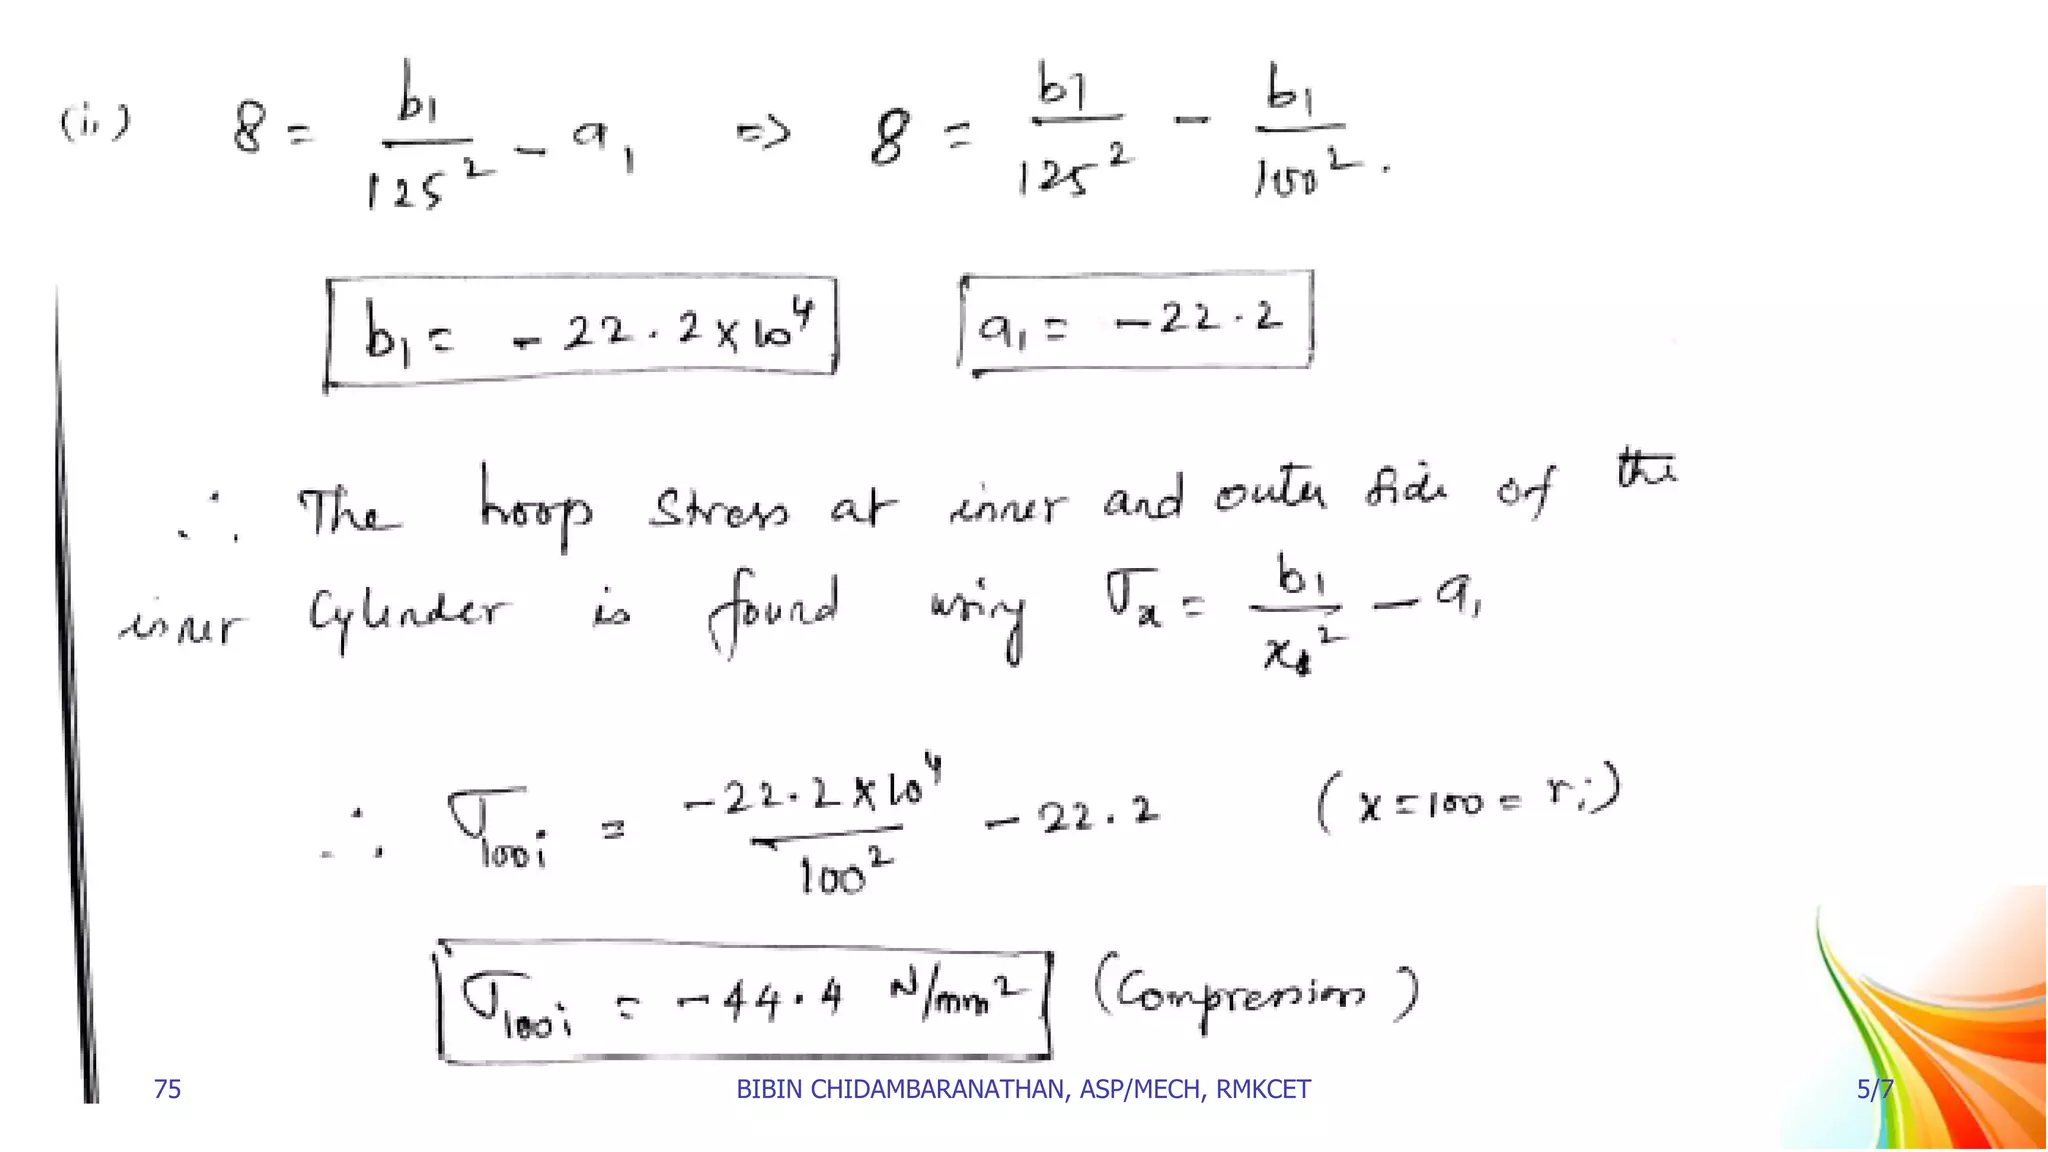 (ii) 8 = b₁/125² - a₁ => 8 = b1/125² - b₁/100².
b₁ = -22.2x10⁴ a₁ = -22.2
∴ The hoop stress at inner and outer side of the
inner Cylinder is found using σx = b₁/x₁² - a₁
∴ σ100i = -22.2x10⁴/100² - 22.2 (x=100=ri)
σ100i = -44.4 N/mm² (Compression)
75 BIBIN CHIDAMBARANATHAN, ASP/MECH, RMKCET 5/7